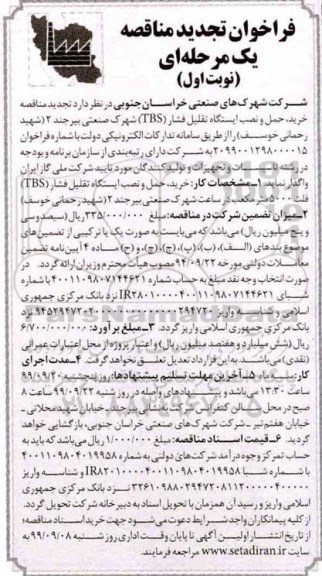 فراخوان تجدید مناقصه
یک مرحله‌ای
(نوبت اول)
شرکت شهرک‌های صنعتی خراسان جنوبی در نظر دارد تجدید مناقصه
خرید، حمل و نصب ایستگاه تقلیل فشار (TBS) شهرک صنعتی بیرجند ۲ (شهید
رحمانی خوسف) را از طریق سامانه تدارکات الکترونیکی دولت با شماره فراخوان
۲۰۹۹۰۰۱۳۹۸۰۰۰۰۱۵ به شرکت دارای رتبه‌بندی از سازمان برنامه و بودجه
در رشته تاسیسات و تجهیزات و تولیدکنندگان مورد تایید شرکت ملی گاز ایران
واگذار نماید. ۱ـ مشخصات کار: خرید، حمل و نصب ایستگاه تقلیل فشار (TBS)
۵۰۰۰ متر مکعب در ساعت شهرک صنعتی بیرجند ۲ (شهید رحمانی خوسف)
۲ـ میزان تضمین شرکت در مناقصه: مبلغ ۳۳۵/۰۰۰/۰۰۰ ریال (سیصد و سی
و پنج میلیون ریال) می‌باشد که می‌بایست به صورت یک یا ترکیبی از تضمین‌های
موضوع بندهای (الف)، (ب)، (پ)، (ج)، (چ)، و (ح) ماده ۴ آیین‌نامه تضمین
معاملات دولتی مورخه ۹۴/۰۹/۲۲ مصوب هیأت محترم وزیران ارائه گردد. در
صورت انتخاب وجه نقد مبلغ به حساب شماره ۴۰۰۱۱۰۹۸۰۷۱۴۴۶۲۱ با شماره
شبای IR۲۸۰۱۰۰۰۰۴۰۰۱۱۰۹۸۰۷۱۴۴۶۲۱ نزد بانک مرکزی جمهوری
اسلامی و شناسه واریز
بانک مرکزی جمهوری اسلامی واریز گردد. ۳ـ مبلغ برآورد: ۶/۷۰۰/۰۰۰/۰۰۰
ریال (شش میلیارد و هفتصد میلیون ریال) و اعتبار پروژه از محل اعتبارات عمرانی
(نقدی) می‌باشد. به این قرارداد تعدیل تعلق نخواهد گرفت. ۴ـ مدت اجرای
کار: ۵ـ آخرین مهلت تسلیم پیشنهادها: روز پنجشنبه ۹۹/۰۹/۲۰
ساعت ۱۳:۳۰ می‌باشد و پیشنهادهای واصله در روز شنبه ۹۹/۰۹/۲۲ ساعت ۸
صبح در محل سالن کنفرانس شرکت به نشانی بیرجند، خیابان شهید محلاتی ـ
خیابان هفتم تیر ـ شرکت شهرک‌های صنعتی خراسان جنوبی، بازگشایی خواهد
گردید. ۶ـ قیمت اسناد مناقصه: مبلغ ۱/۰۰۰/۰۰۰ ریال می‌باشد که باید به
حساب تمرکز وجوه درآمد شرکت‌های دولتی به شماره ۴۰۰۱۱۰۹۸۰۴۰۱۹۹۵۸
با شماره شبا IR۸۲۰۱۰۰۰۰۴۰۰۱۱۰۹۸۰۴۰۱۹۹۵۸ و شناسه واریز
نزد بانک مرکزی جمهوری
اسلامی واریز و رسید آن همزمان با تحویل اسناد به دبیرخانه شرکت تحویل گردد.
از کلیه پیمانکاران واجد شرایط دعوت می‌شود جهت خرید اسناد مناقصه؛
از تاریخ انتشار اولین آگهی تا پایان وقت اداری روز شنبه ۹۹/۰۹/۰۸ به
سایت www.setadiran.ir مراجعه فرمایند.